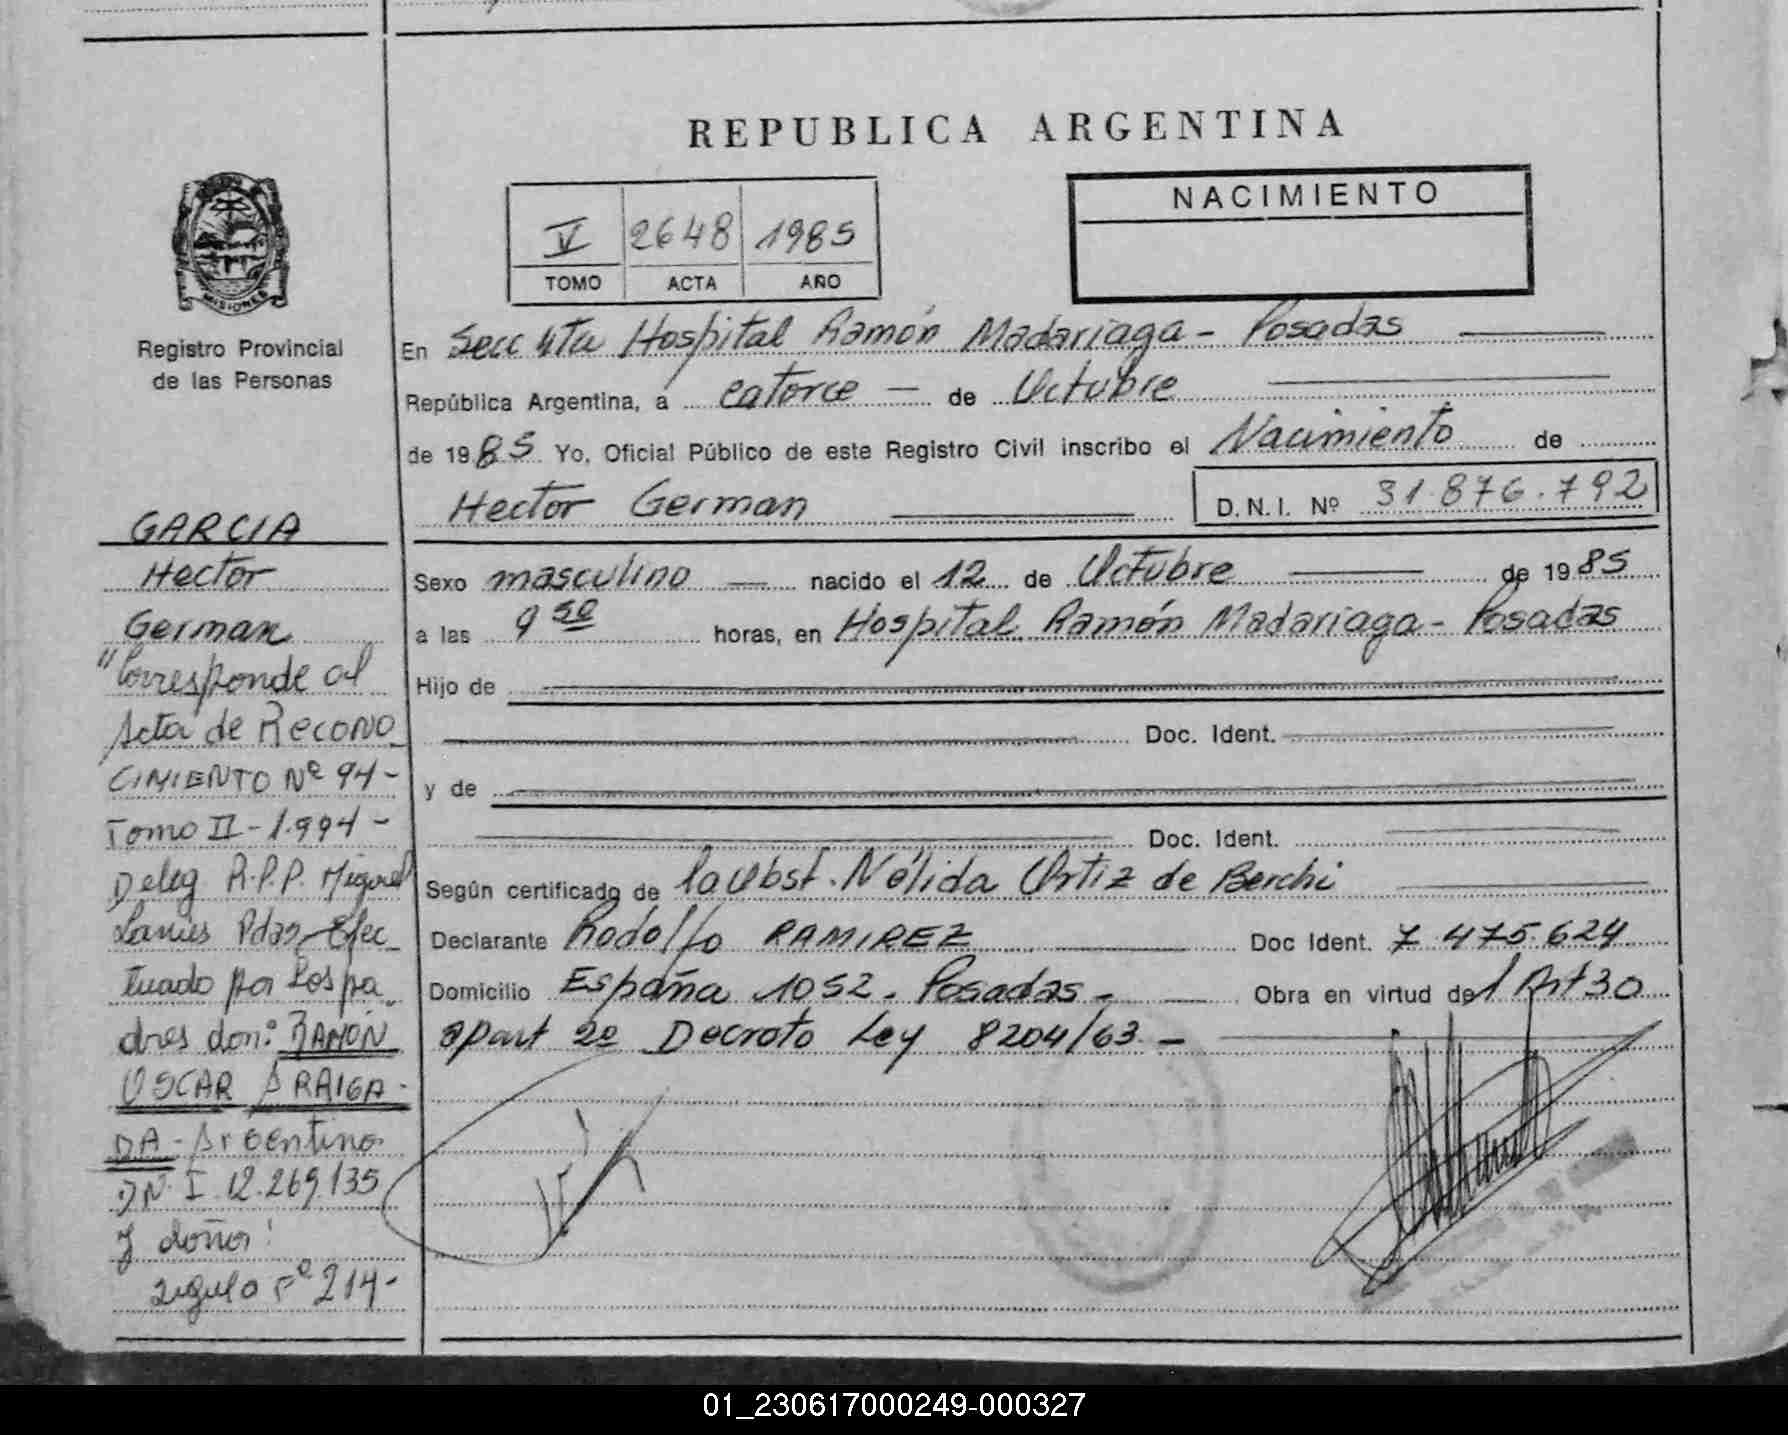 REPUBLICA ARGENTINA
NACIMIENTO
V 2648 1985
TOMO ACTA AÑO
MISIONES
Registro Provincial
de las Personas
En Secc 4ta Hospital Ramón Madariaga - Posadas
República Argentina, a catorce — de Octubre
de 1985 Yo, Oficial Público de este Registro Civil inscribo el Nacimiento de
Hector German D.N.I. Nº 31.876.792
Sexo masculino — nacido el 12 de Octubre de 1985
a las 9 50 horas, en Hospital Ramón Madariaga - Posadas
Hijo de
Doc. Ident.
y de
Doc. Ident.
Según certificado de la Obst. Nélida Ortiz de Berchi
Declarante Rodolfo RAMIREZ Doc Ident. 7.475.624
Domicilio España 1052 - Posadas - Obra en virtud del Art 30
apart 2º Decreto Ley 8204/63 -
GARCIA
Hector
German
"Corresponde al
Acta de Recono
CIMIENTO Nº 94-
Tomo II - 1.994 -
Deleg R.P.P. Miguel
Lanús Pdas Efec
tuado por los pa
dres don: RAMON
OSCAR ARAIGA-
DA - Argentino
DN.I 12.269.135
y doña:
sigue 214-
01_230617000249-000327